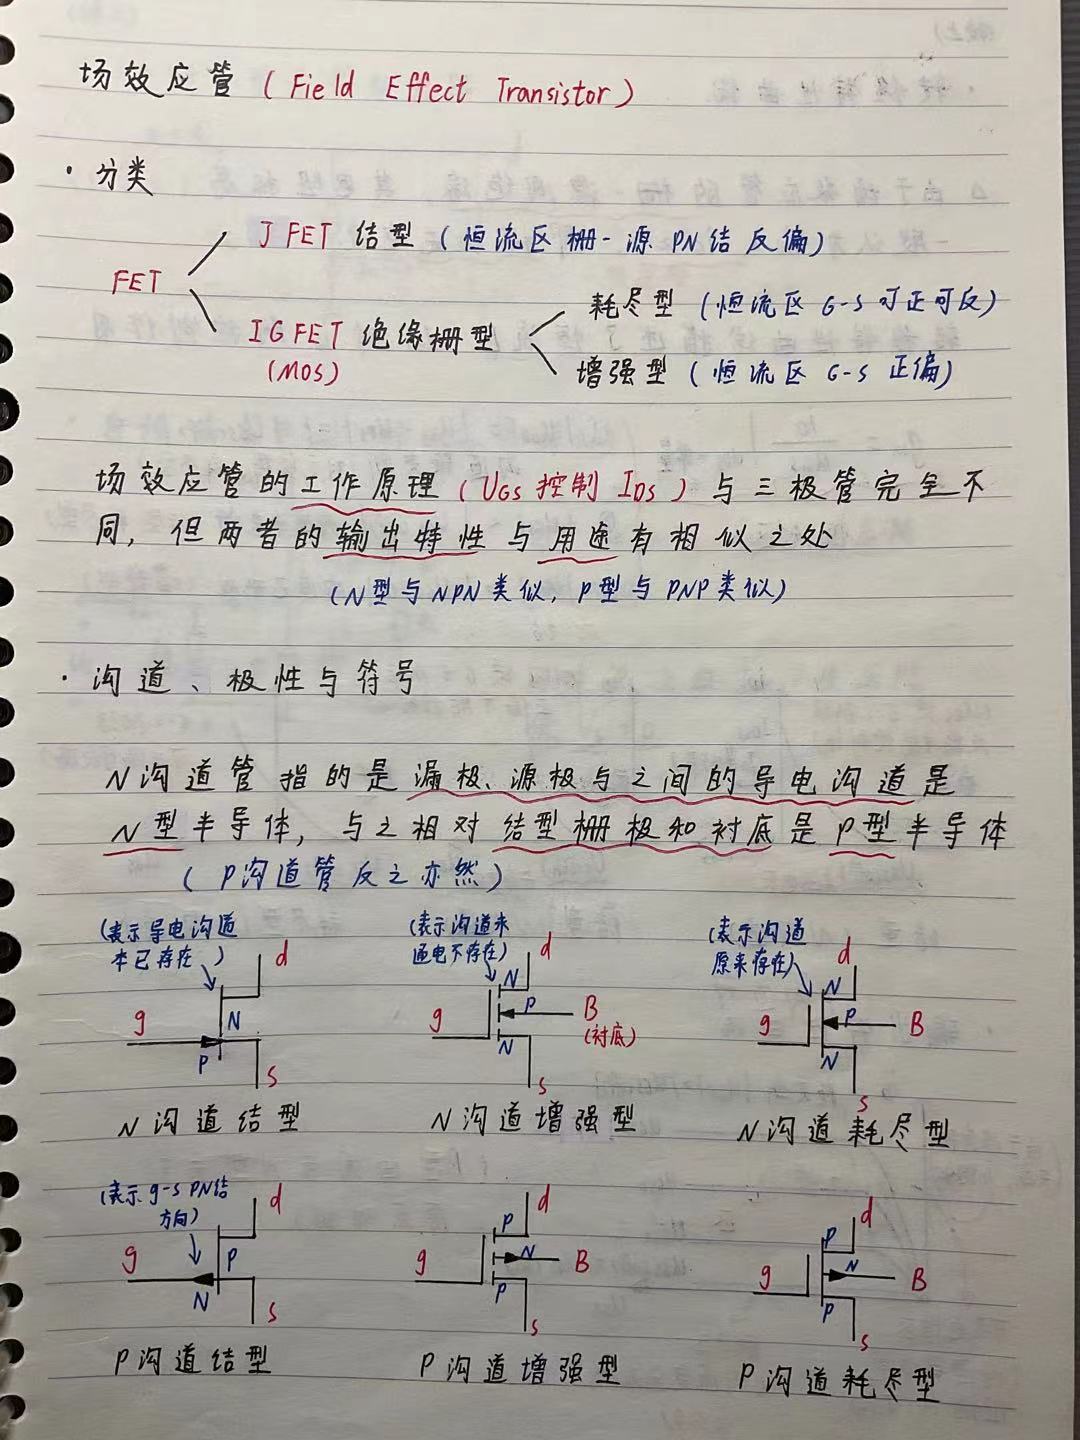 场效应管(Field Effect Transistor)
·分类
FET
JFET 结型(恒流区栅-源PN结反偏)
IGFET 绝缘栅型
(MOS)
耗尽型(恒流区G-S可正可反)
增强型(恒流区G-S正偏)
场效应管的工作原理(UGS控制IDS)与三极管完全不
同,但两者的输出特性与用途有相似之处
(N型与NPN类似,P型与PNP类似)
·沟道、极性与符号
N沟道管指的是漏极、源极与之间的导电沟道是
N型半导体,与之相对结型栅极和衬底是P型半导体
(P沟道管反之亦然)
(表示导电沟道
本已存在)
d
g
N
P
s
N沟道结型
(表示沟道未
通电不存在)
d
N
g
P
B
(衬底)
N
s
N沟道增强型
(表示沟道
原来存在)
d
N
g
P
B
N
s
N沟道耗尽型
(表示g-s PN结
方向)
d
g
P
N
s
P沟道结型
d
P
g
N
B
P
s
P沟道增强型
d
P
g
N
B
P
s
P沟道耗尽型